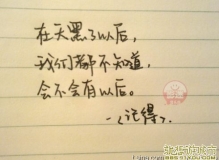 在天黑了以后,
我们都不知道,
会不会有以后。
-《记得》.